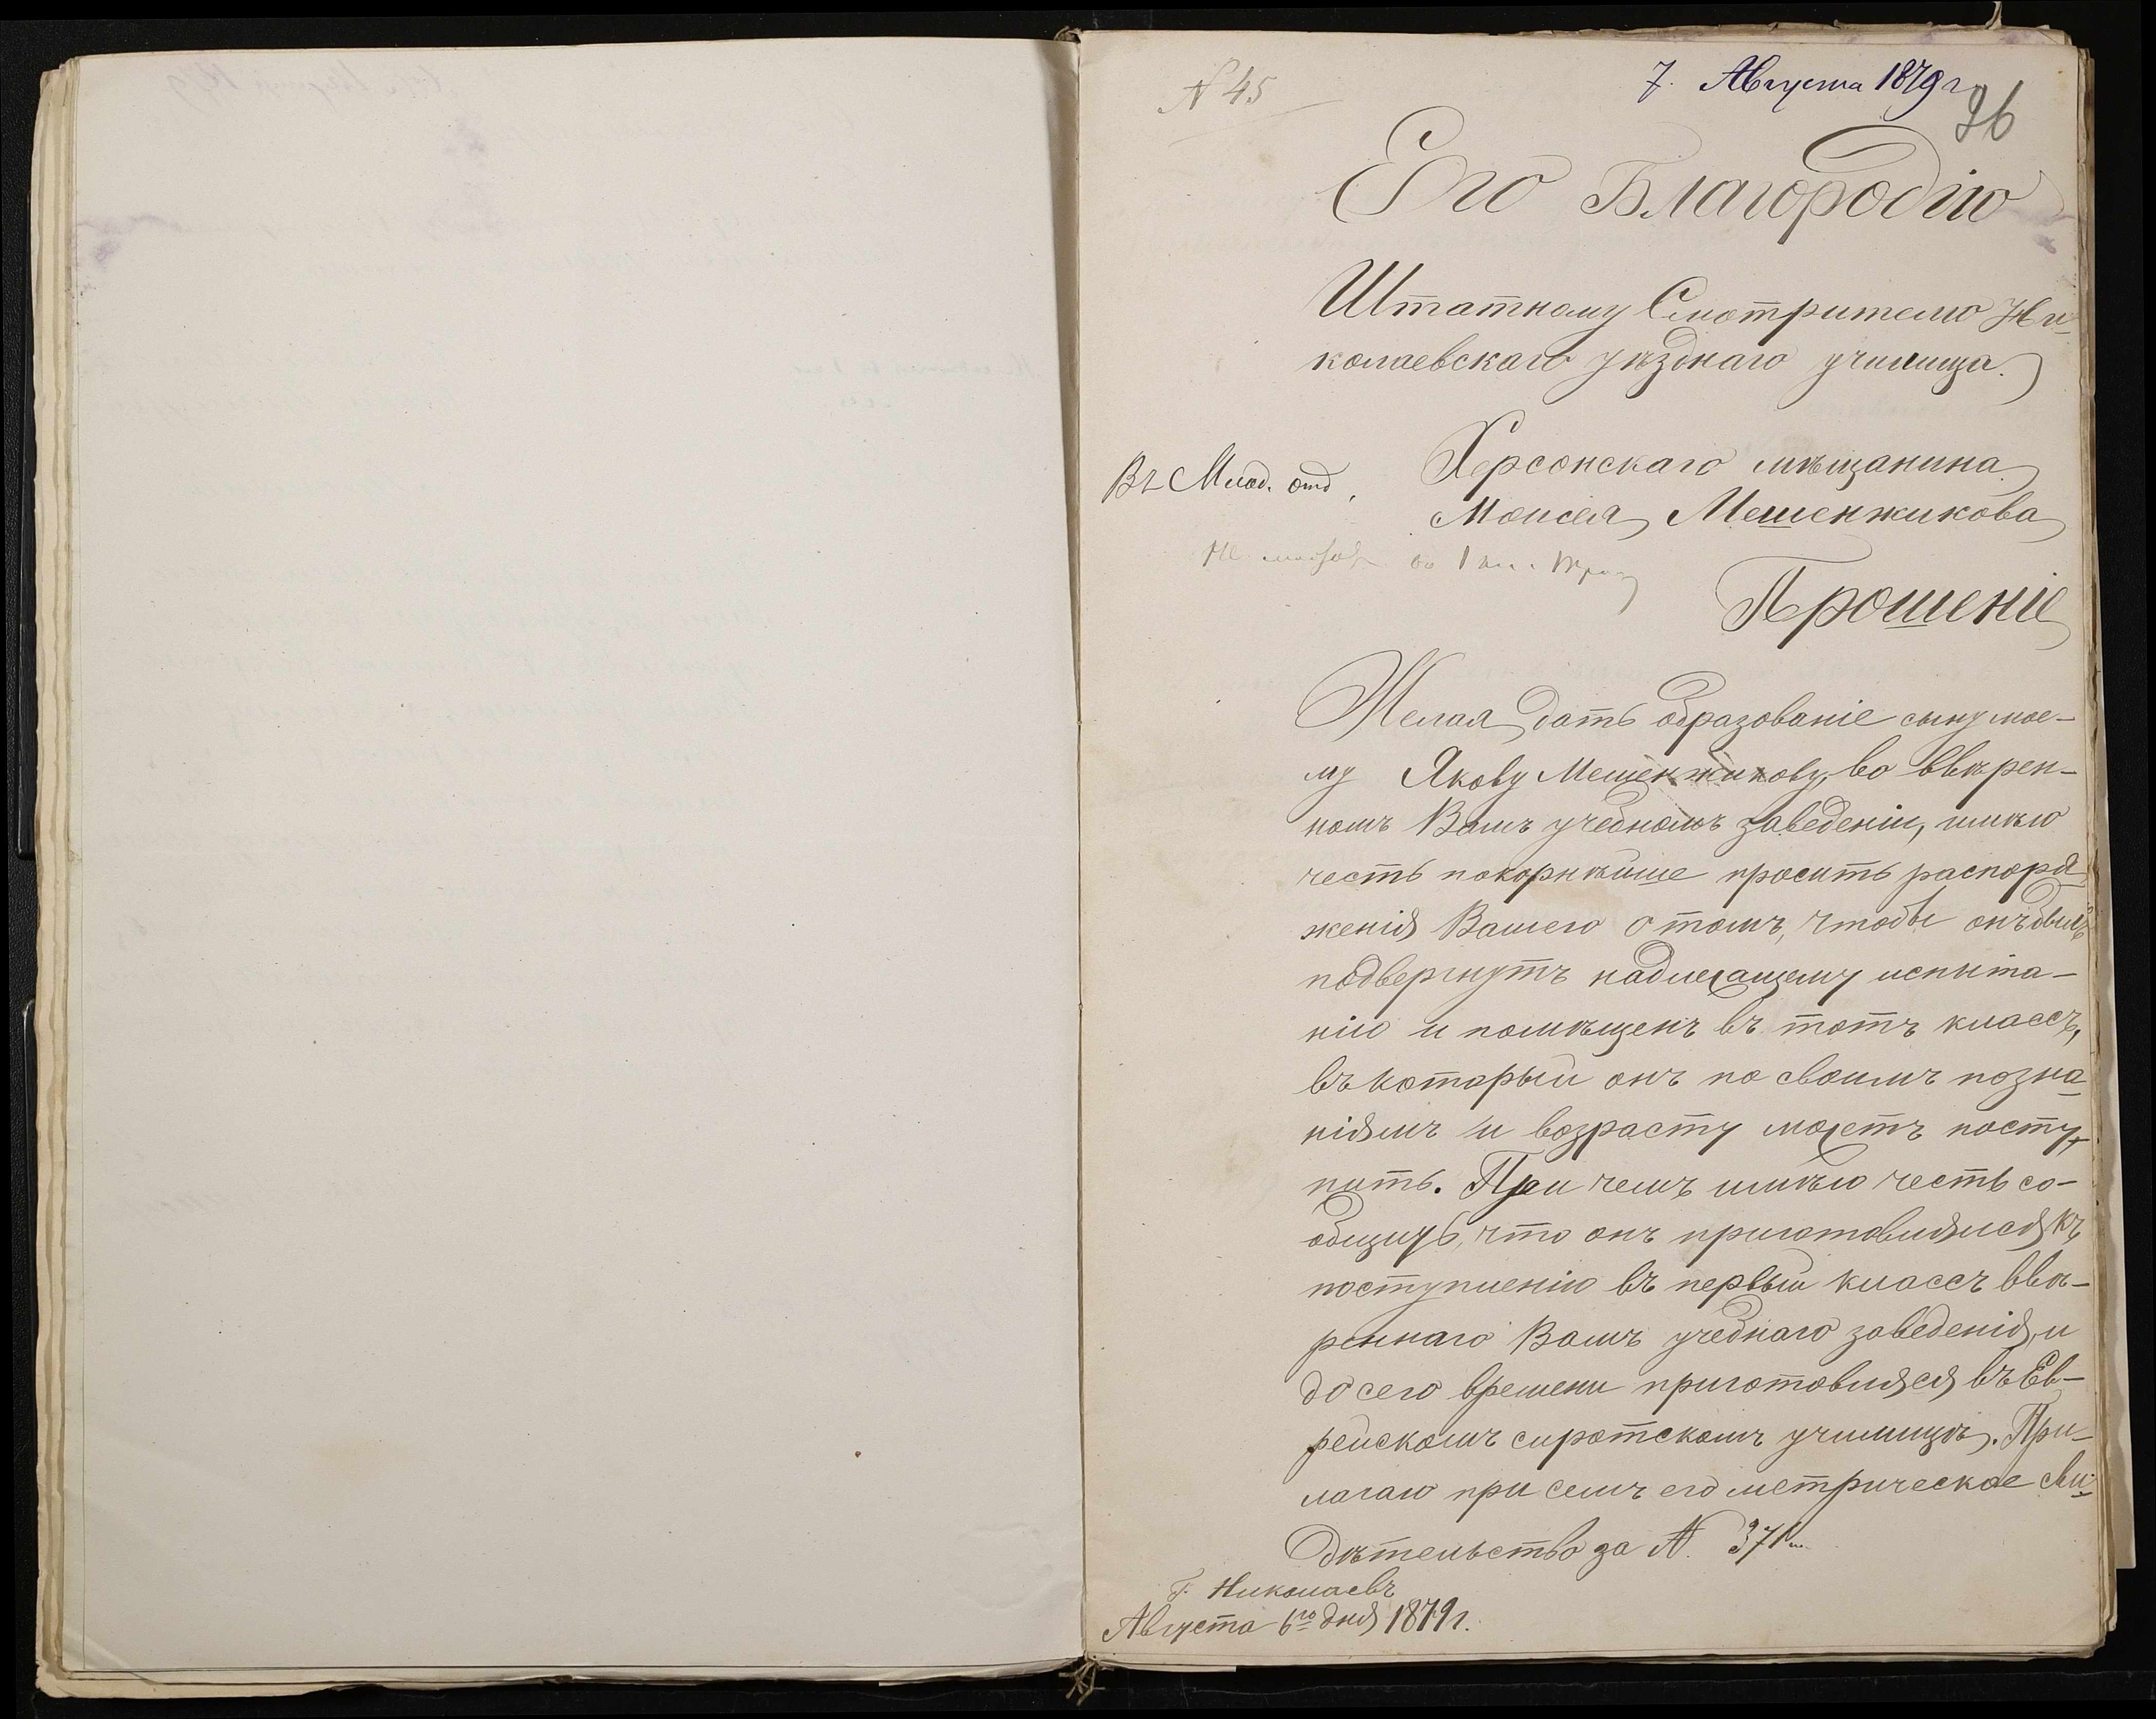 N 45
7. Августа 1879 г.
26
Его Благородію
Штатному Смотрителю Ни-
колаевскаго уѣзднаго училища.
Херсонскаго мѣщанина
Въ Млад. отд.
Моисея Мешенжикова
Не въ 1 кл.
Прошеніе
Желая дать образованіе сыну мое-
му Якову Мешенжикову, во ввѣрен-
номъ Вамъ учебномъ заведеніи, имѣю
честь покорнѣйше просить распоря-
женія Вашего о томъ, чтобы онъ былъ
подвергнутъ надлежащему испыта-
нію и помѣщенъ въ тотъ классъ,
въ который онъ по своимъ позна-
ніямъ и возрасту можетъ посту-
пить. При чемъ имѣю честь со-
общить, что онъ приготовлялся къ
поступленію въ первый классъ ввѣ-
реннаго Вамъ учебнаго заведенія, и
до сего времени приготовлялся въ Ев-
рейскомъ сиротскомъ училищѣ. При-
лагаю при семъ его метрическое сви-
дѣтельство за N. 371
Г. Николаевъ
Августа 6го дня 1879 г.